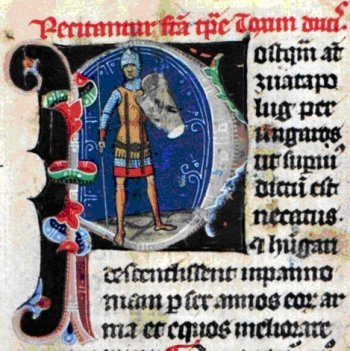 Recitantur facta tpe Toxun ducis.
Postqm at
zuatapo
lug per
ungaros
ut supius
dictū est
necatus.
descendissent in panno
niam p sex annos eor ar
ma et equos meliorare